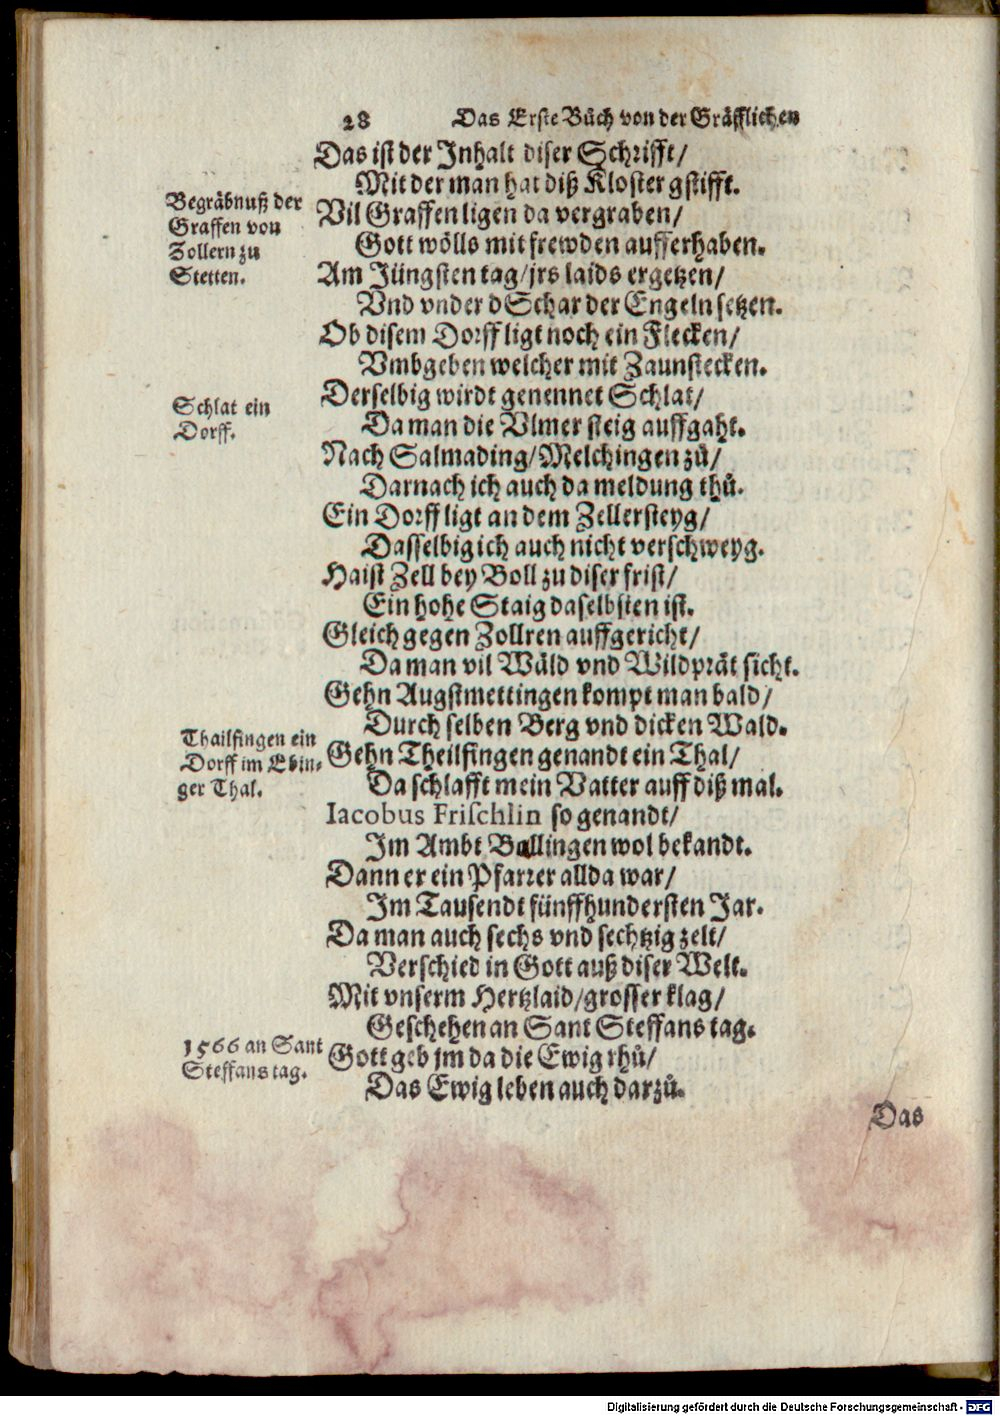 28 Das Erste Bůch von der Gräfflichen
Das ist der Inhalt diser Schrifft/
Mit der man hat diß Kloster gstifft.
Begräbnuß der
Graffen von
Zollern zu
Stetten.
Vil Graffen ligen da vergraben/
Gott wölls mit frewden aufferhaben.
Am Jüngsten tag/jrs laids ergetzen/
Vnd vnder d Schar der Engeln setzen.
Ob disem Dorff ligt noch ein Flecken/
Vmbgeben welcher mit Zaunstecken.
Schlat ein
Dorff.
Derselbig wirdt genennet Schlat/
Da man die Vlmer steig auffgaht.
Nach Salmading/Melchingen zů/
Darnach ich auch da meldung thů.
Ein Dorff ligt an dem Zellersteyg/
Dasselbig ich auch nicht verschweyg.
Haist Zell bey Boll zu diser frist/
Ein hohe Staig daselbsten ist.
Gleich gegen Zollren auffgericht/
Da man vil Wäld vnd Wildprät sicht.
Gehn Augstmettingen kompt man bald/
Durch selben Berg vnd dicken Wald.
Thailfingen ein
Dorff im Ebin-
ger Thal.
Gehn Theilfingen genandt ein Thal/
Da schlafft mein Vatter auff diß mal.
Iacobus Friſchlin so genandt/
Im Ambt Ballingen wol bekandt.
Dann er ein Pfarrer allda war/
Im Tausendt fünffhundersten Jar.
Da man auch sechs vnd sechtzig zelt/
Verschied in Gott auß diser Welt.
Mit vnserm Hertzlaid/grosser klag/
Geschehen an Sant Steffans tag.
1566 an Sant
Steffans tag.
Gott geb jm da die Ewig rhů/
Das Ewig leben auch darzů.
Das
Digitalisierung gefördert durch die Deutsche Forschungsgemeinschaft - DFG